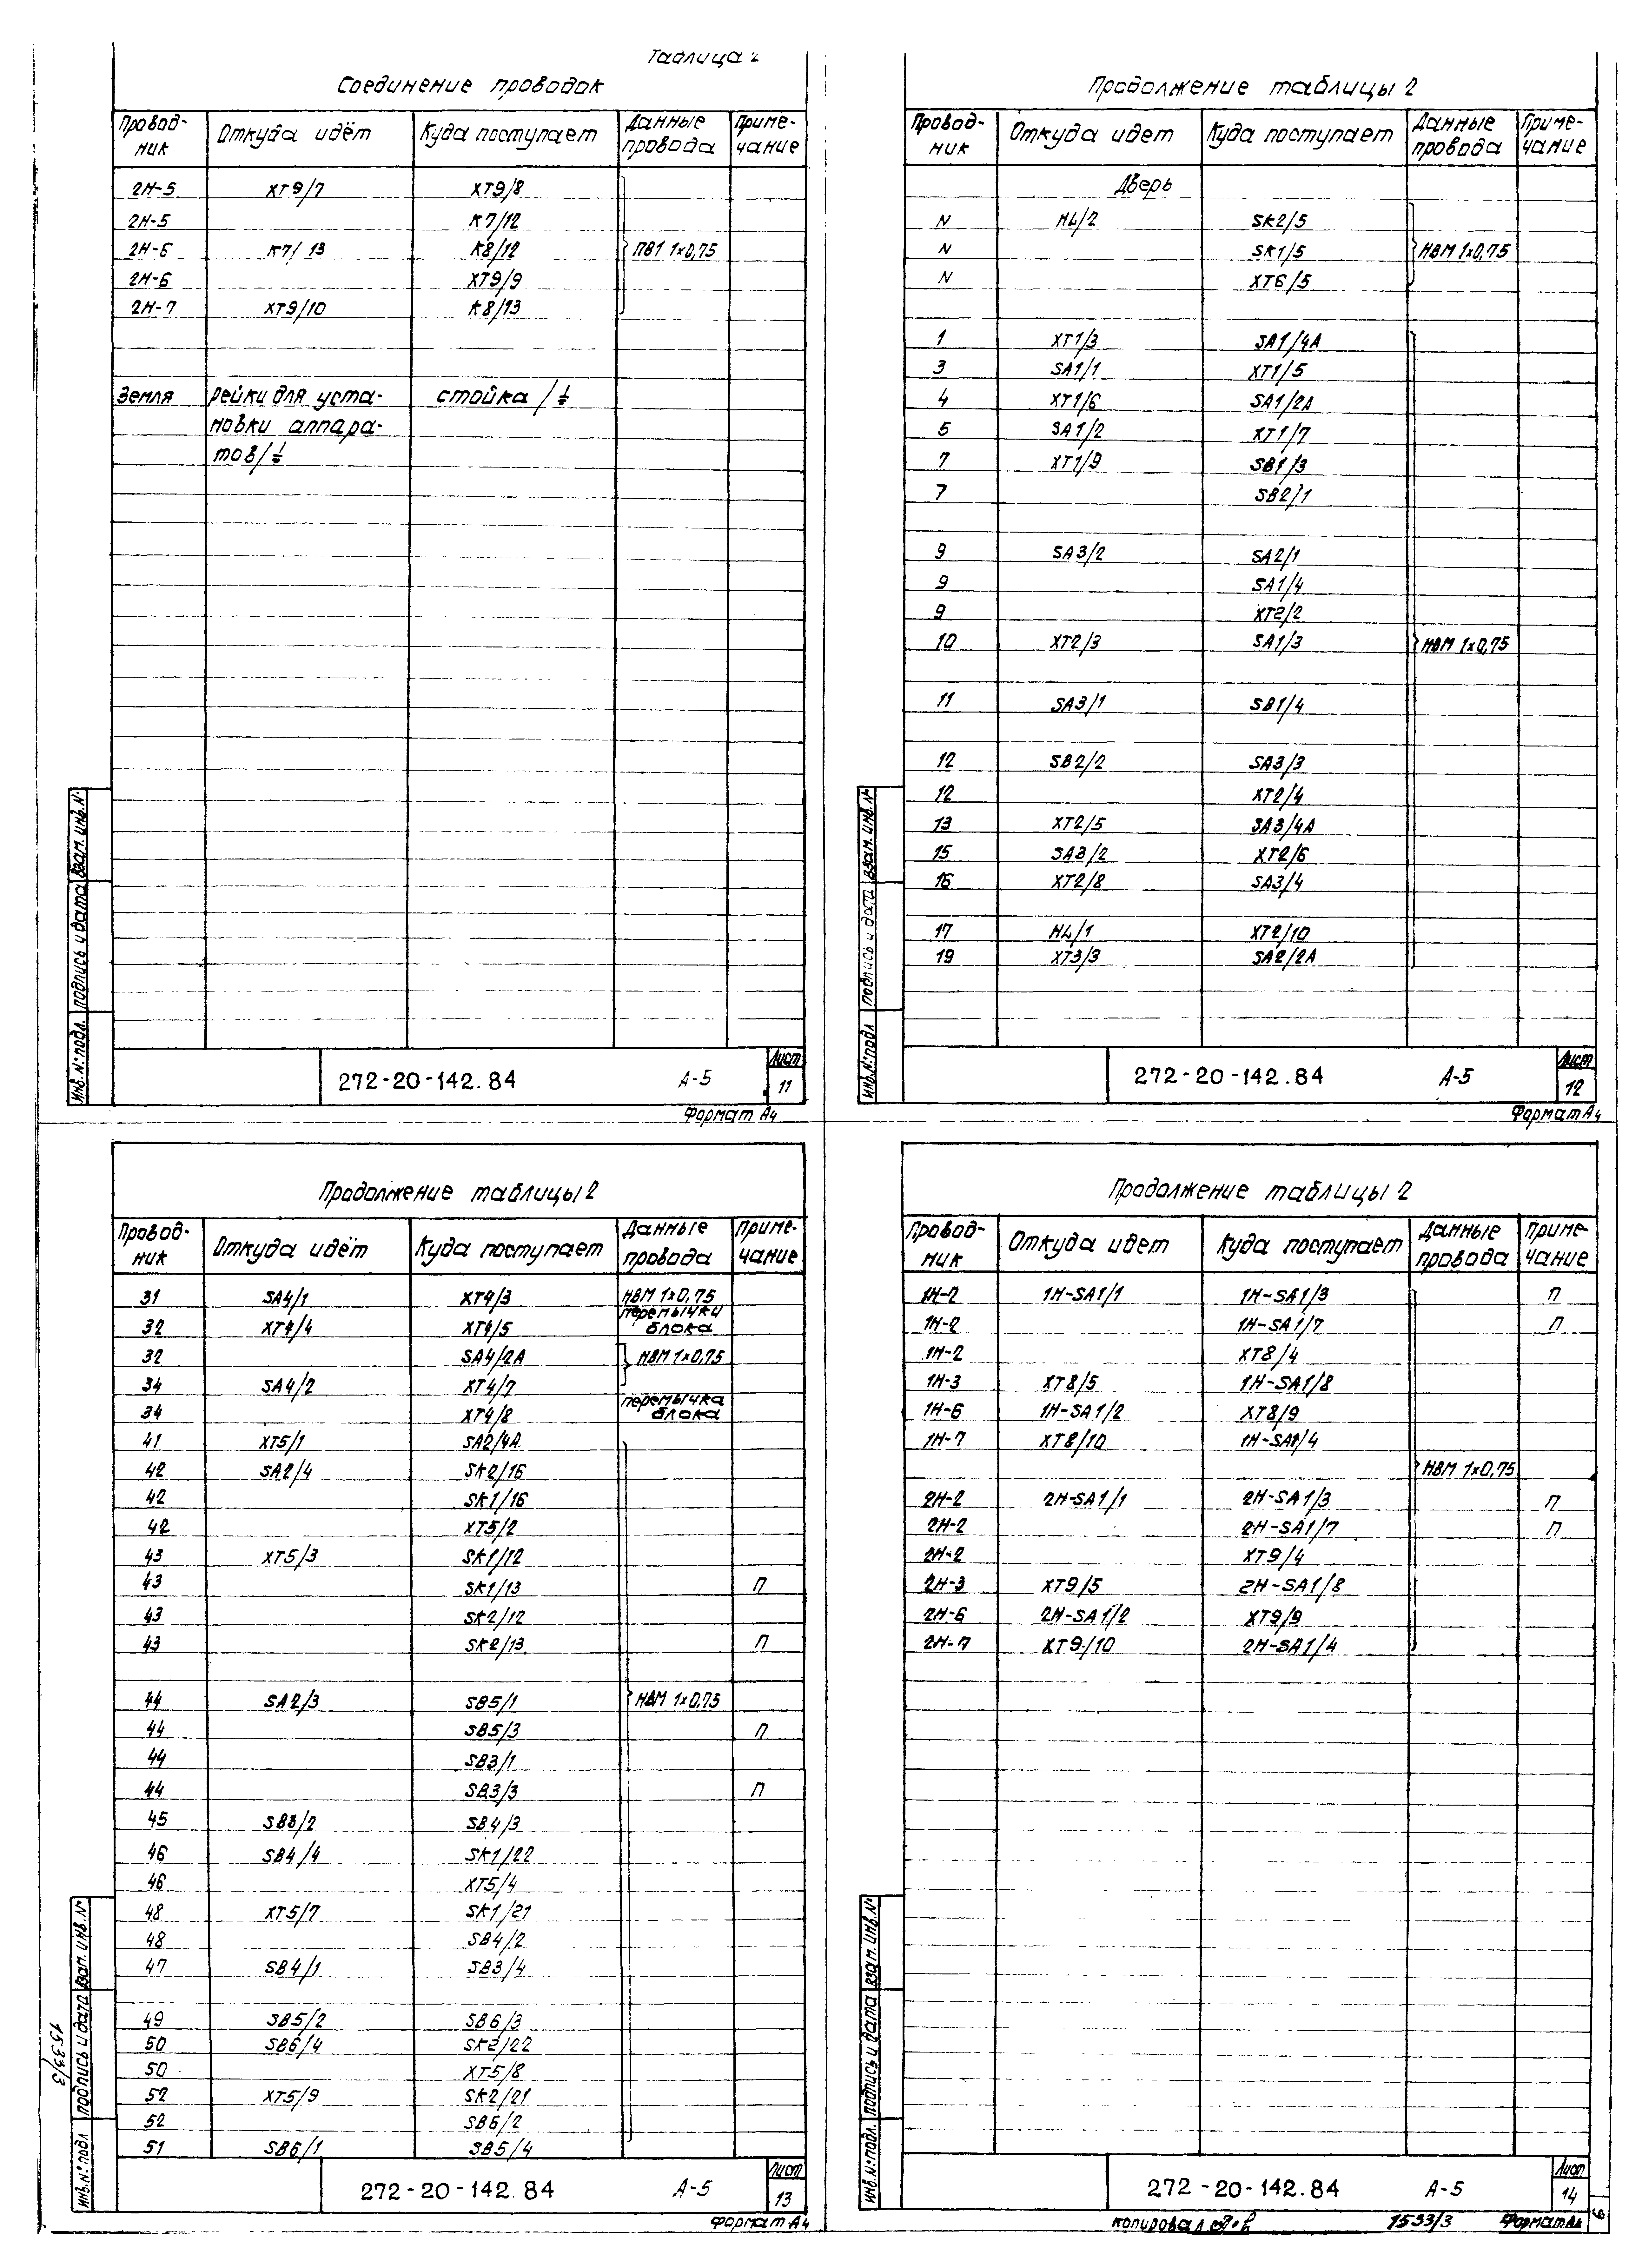 Таблица 2
Соединение проводок
Провод-ник Откуда идёт Куда поступает Данные провода Приме-чание
2Н-5 ХТ9/7 ХТ9/8
2Н-5 К7/12
2Н-6 К7/13 К8/12 ПВ1 1х0,75
2Н-6 ХТ9/9
2Н-7 ХТ9/10 К8/13
Земля рейки для уста- стойка/⏚
новки аппара-
тов/⏚
Взам. инв. №
подпись и дата
Инв. № подл.
272-20-142.84 А-5 Лист 11
Формат А4
Продолжение таблицы 2
Провод-ник Откуда идет Куда поступает Данные провода Приме-чание
Дверь
N HL/2 SK2/5
N SK1/5 НВМ 1х0,75
N XT6/5
1 XT1/3 SA1/4A
3 SA1/1 XT1/5
4 XT1/6 SA1/2A
5 SA1/2 XT1/7
7 XT1/9 SB1/3
7 SB2/1
9 SA3/2 SA2/1
9 SA1/4
9 XT2/2
10 XT2/3 SA1/3 НВМ 1х0,75
11 SA3/1 SB1/4
12 SB2/2 SA3/3
12 XT2/4
13 XT2/5 SA3/4A
15 SA3/2 XT2/6
16 XT2/8 SA3/4
17 HL/1 XT2/10
19 XT3/3 SA2/2A
взам. инв. №
подпись и дата
инв. № подл
272-20-142.84 А-5 Лист 12
Формат А4
Продолжение таблицы 2
Провод-ник Откуда идёт Куда поступает Данные провода Приме-чание
31 SA4/1 XT4/3 НВМ 1х0,75
32 XT4/4 XT4/5 перемычки блока
32 SA4/2A НВМ 1х0,75
34 SA4/2 XT4/7
34 XT4/8 перемычка блока
41 XT5/1 SA2/4A
42 SA2/4 SK2/16
42 SK1/16
42 XT5/2
43 XT5/3 SK1/12
43 SK1/13 П
43 SK2/12
43 SK2/13 П
44 SA2/3 SB5/1 НВМ 1х0,75
44 SB5/3 П
44 SB3/1
44 SB3/3 П
45 SB3/2 SB4/3
46 SB4/4 SK1/22
46 XT5/4
48 XT5/7 SK1/21
48 SB4/2
47 SB4/1 SB3/4
49 SB5/2 SB6/3
50 SB6/4 SK2/22
50 XT5/8
52 XT5/9 SK2/21
52 SB6/2
51 SB6/1 SB5/4
взам. инв. №
подпись и дата
инв. № подл
1533/3
272-20-142.84 А-5 Лист 13
Формат А4
Продолжение таблицы 2
Провод-ник Откуда идет Куда поступает Данные провода Приме-чание
1Н-2 1Н-SA1/1 1Н-SA1/3 П
1Н-2 1Н-SA1/7 П
1Н-2 XT8/4
1Н-3 XT8/5 1Н-SA1/8
1Н-6 1Н-SA1/2 XT8/9
1Н-7 XT8/10 1Н-SA1/4
НВМ 1х0,75
2Н-2 2Н-SA1/1 2Н-SA1/3 П
2Н-2 2Н-SA1/7 П
2Н-2 XT9/4
2Н-3 XT9/5 2Н-SA1/8
2Н-6 2Н-SA1/2 XT9/9
2Н-7 XT9/10 2Н-SA1/4
взам. инв. №
подпись и дата
инв. № подл.
272-20-142.84 А-5 Лист 14
копировал 1533/3 Формат А4